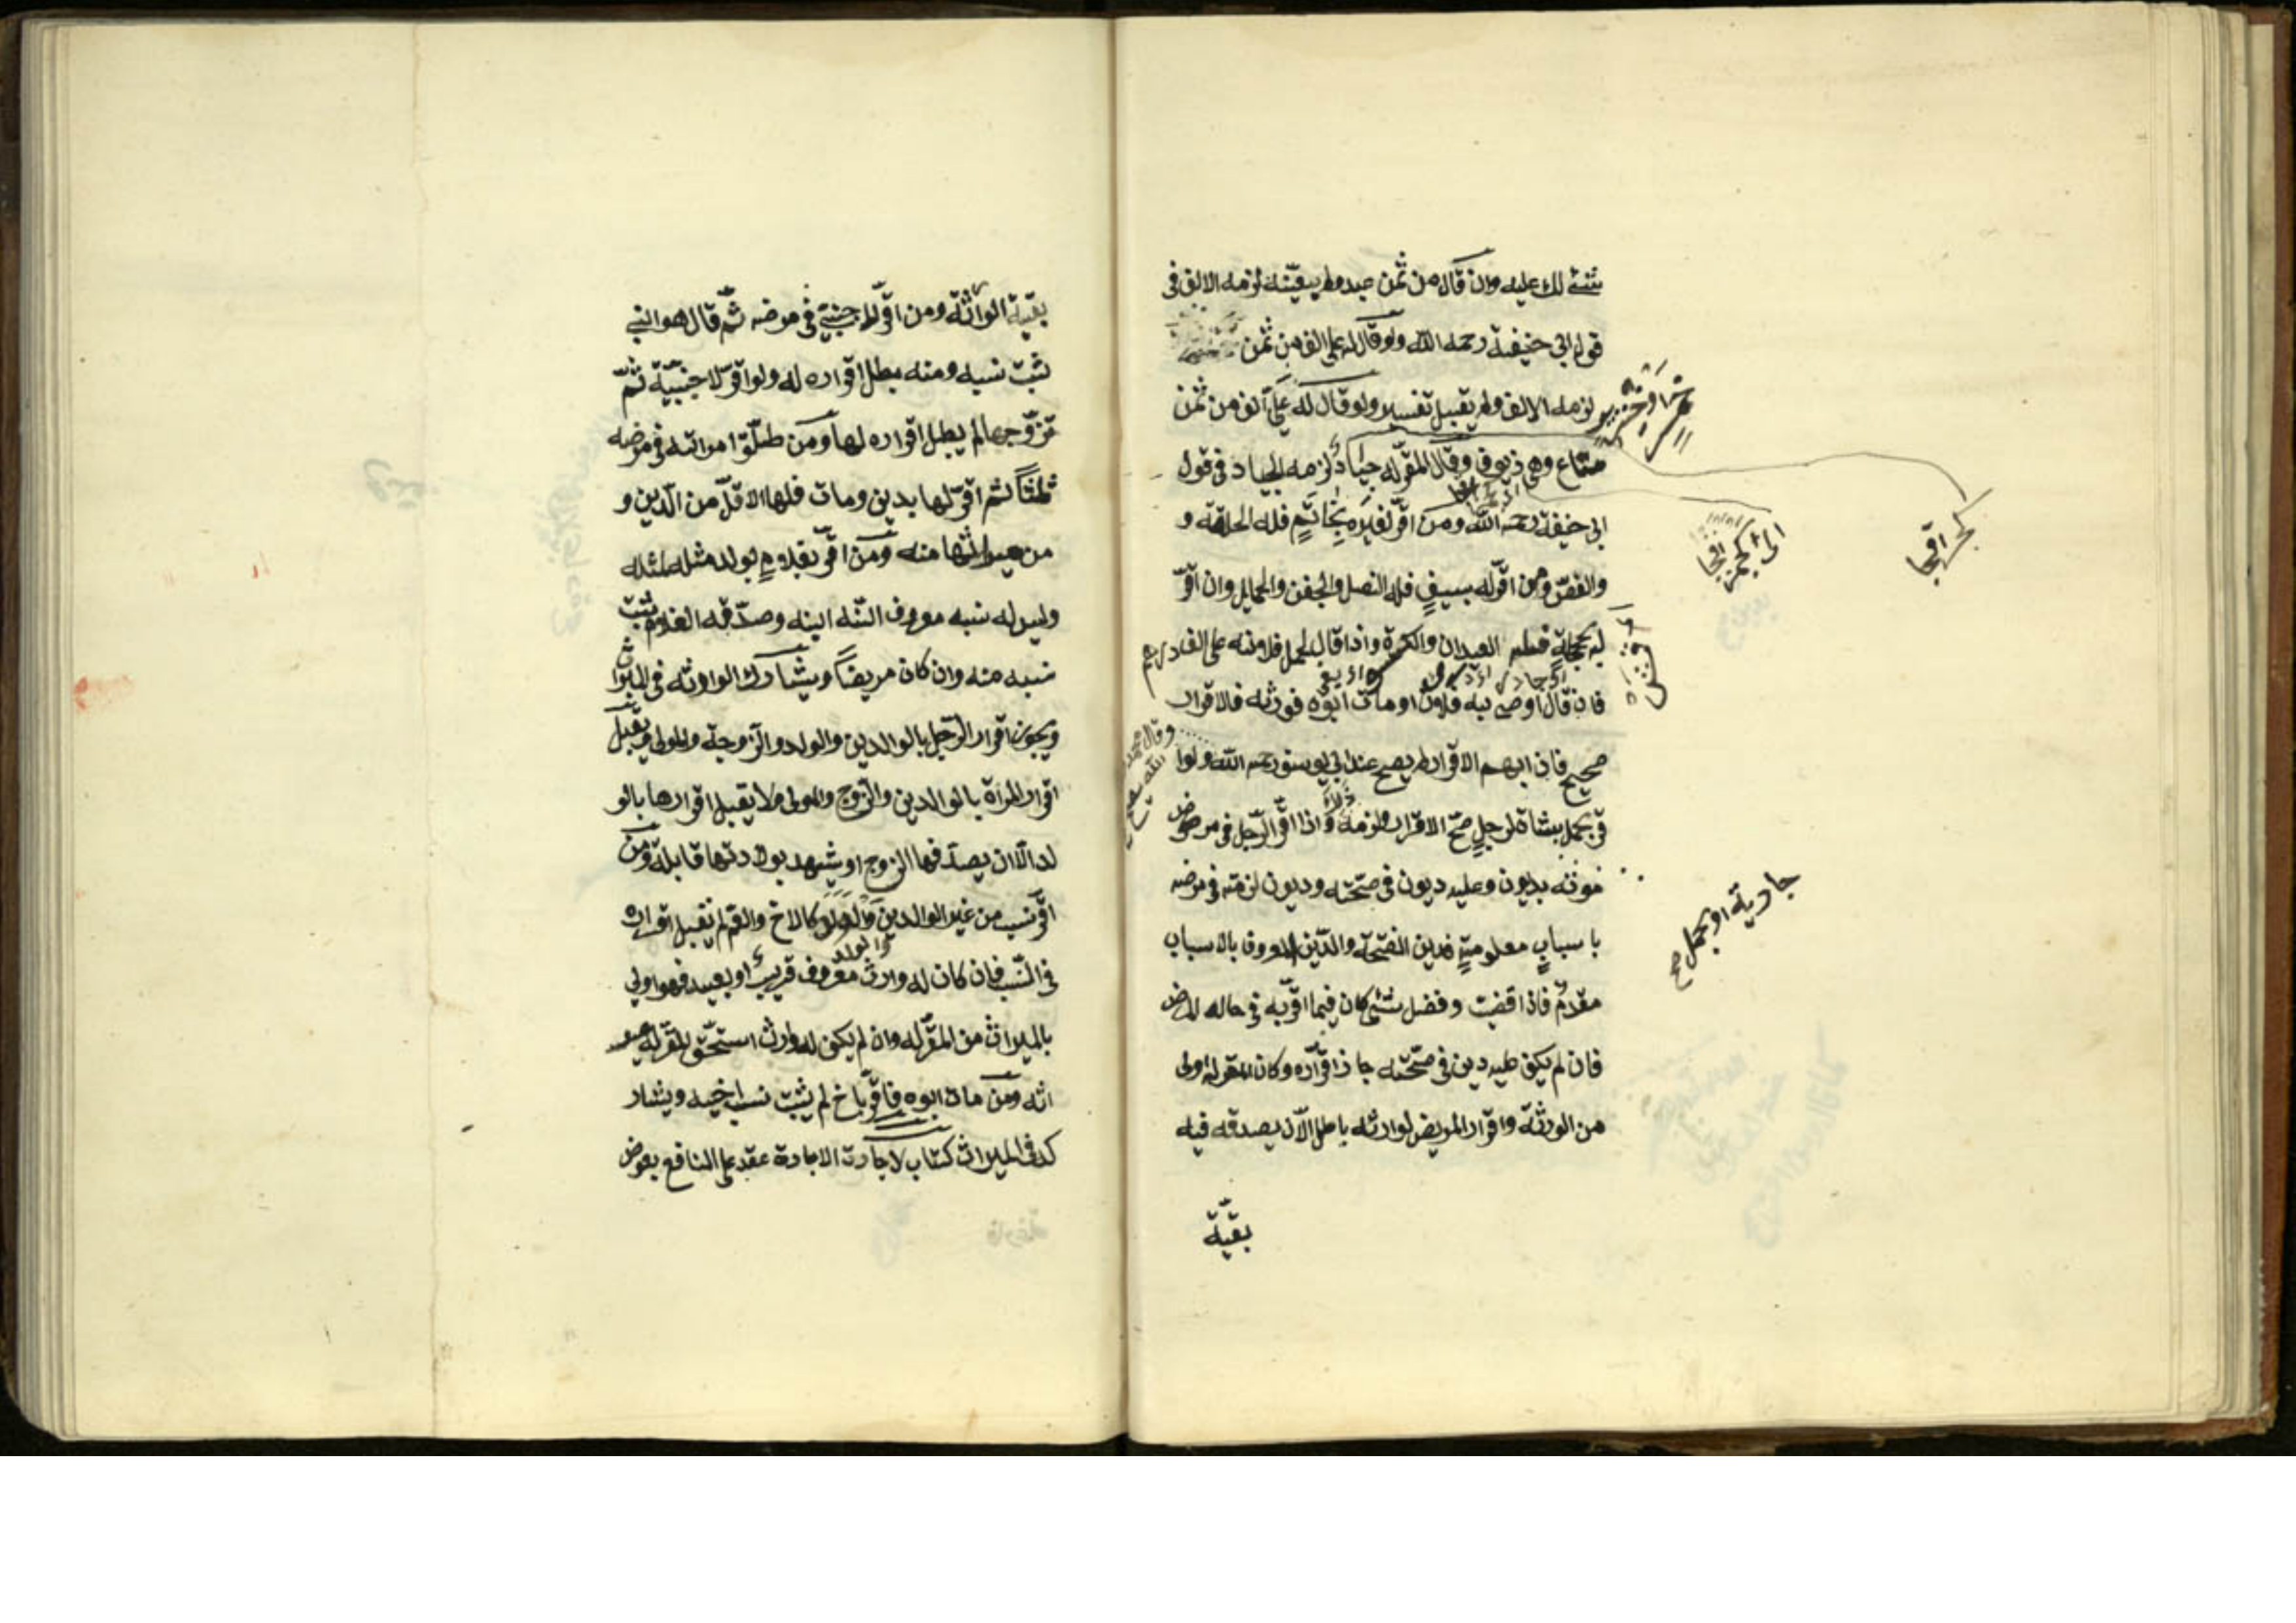 شئ لك عليه وان قال من ثمن عبد ولم يعينه لزمه الالف فى
قول ابى حنيفة رحمه الله ولو قال له على الف من ثمن
خمر او خنزير
لزمه الالف ولم يقبل تفسيره ولو قال له علىّ الف من ثمن
متاع وهى زيوف وقال المقرّ له جياد لزمه الجياد فى قول
ابى حنيفة رحمه الله ومن اقرّ لغيره بخاتم فله الحلقة و
والفصّ ومن اقرّ له بسيفٍ فله النصل والجفن والحمايل وان اقرّ
له بحجلةٍ فله العيدان والكسوة واذا قال لحمل فلانة على الف درهم
فان قال اوصى به فلان او مات ابوه فورثه فالاقرار
صحيح فان ابهم الاقرار لم يصح عند ابى يوسف رحمه الله ولوا
قرّ بحمل شاة لرجلٍ صحّ الاقرار ولزمه واذا اقرّ الرّجل فى مرض
موته بديون وعليه ديون فى صحّته وديون لزمته فى مرضه
با سبابٍ معلومةٍ فدين الصّحة والدّين المعروف بالاسباب
مقدم فاذا قضيت وفضل شئ كان فيما اقرّ به فى حاله المرض
فان لم يكن عليه دين فى صحّته جاز اقراره وكان المقر له اولى
من الورثة واقرار المريض لوارثه باطل الّا ان يصدقه فيه
بقيّة
وقال محمد
جارية او بحمل صح
بقيّة الوارثة ومن اقرّ لاجنبىّ فى مرضه ثمّ قال هو ابنى
ثبت نسبه ومنه بطل اقراره له ولو اقرّ لاجنبيّة ثمّ
تزوّجها لم يبطل اقراره لها ومن طلّق امراته فى مرضه
ثلثاً ثم اقرّ لها بدين ومات فلها الاقلّ من الدّين و
من ميراثها منه ومن اقرّ بغلامٍ يولد مثله لمثله
وليس له نسبه معروف انّه ابنه وصدّقه الغلام ثبت
نسبه منه وان كان مريضاً ويشارك الوارثه فى الميراث
ويجوز اقرار الرّجل بالوالدين والولد والزّوجة والمولى ويقبل
اقرار المراة بالوالدين والزّوج والمولى ولا يقبل اقرارها بالو
لد الّا ان يصدّقها الزوج او يشهد بولادتها قابلة ومن
اقرّ بنسب من غير الوالدين والولد كالاخ والعم لم يقبل اقراره
فى النّسب فان كان له وارث معروف قريب او بعيد فهو اولى
بالميراث من المقرّ له وان لم يكن له وارث استحقّ المقرّ له مير
اثه ومن مات ابوه فاقرّ باخ لم يثبت نسب اخيه ويشار
كه فى الميراث كتاب الاجارت الاجارة عقد على المنافع بعوض